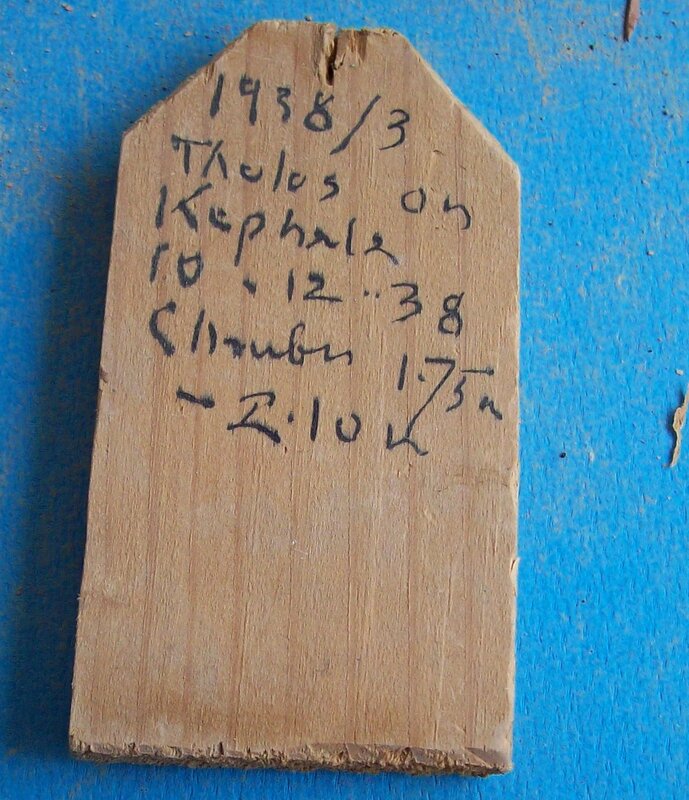 1938/3
Tholos on
Kephala
10.12..38
Chamber 1.75m
- 2.10 m